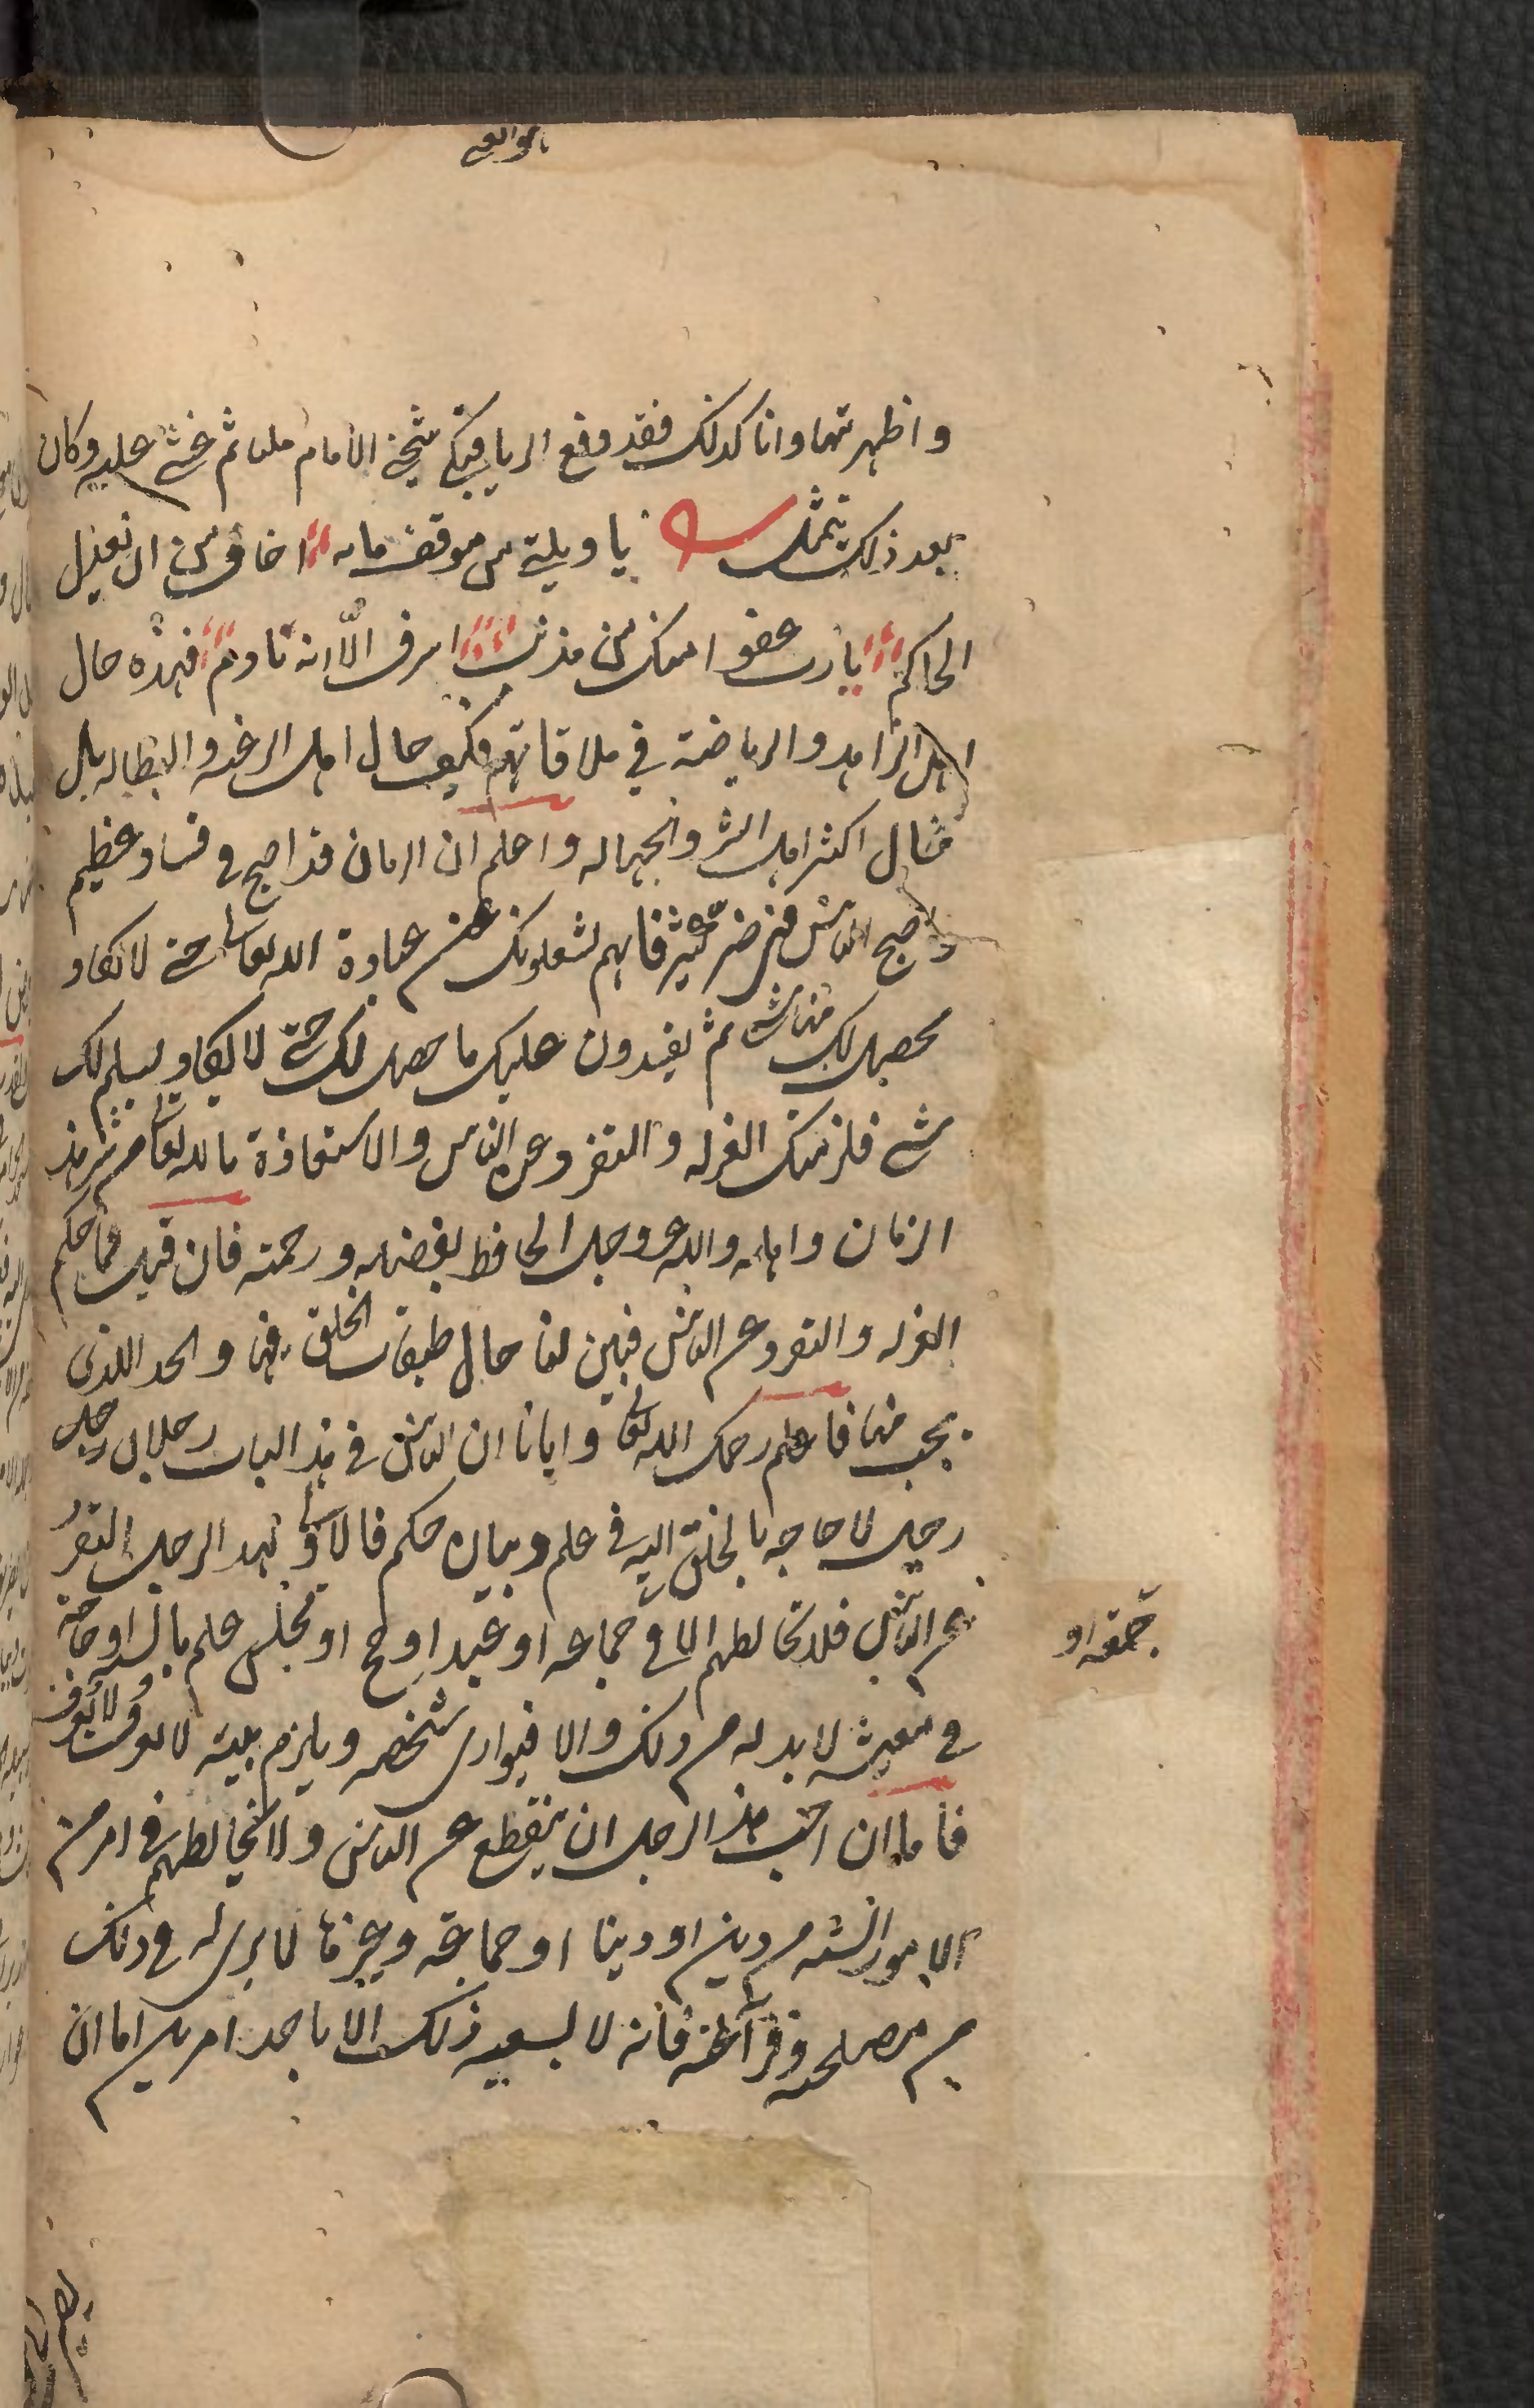 واظهرتها وانا كذلك فقد وقع الريا فبكى شيخي الامام مليا ثم غشي عليه وكان
بعد ذلك يتمثل يا ويلتي من موقف ما به اخاف من ان يعدل
الحاكم يا رب عفوا منك من مذنب اسرف الا انه نادم فهذه حال
اهل الزهد والرياضة في ملاقاتهم فكيف حال اهل الرغبة والبطالة بل
حال اكثر اهل الشر والجهالة واعلم ان الزمان قد اصبح في فساد عظيم
واصبح الناس في ضر كثير فانهم يشغلونك عن عبادة الله تعالى حتى لا يكاد
يحصل لك منها شي ثم يفسدون عليك ما حصل لك حتى لا يكاد يسلم لك
شي فلزمتك العزلة والتفرد عن الناس والاستعاذة بالله تعالى من شر هذا
الزمان واهله والله عز وجل الحافظ بفضله ورحمته فان قيل فما حكم
العزلة والتفرد عن الناس فبين لنا حال طبقات الخلق فيها والحد الذي
يجب منها فاعلم رحمك الله تعالى وايانا ان الناس في هذا الباب رجلان رجل
رجل لا حاجة بالخلق اليه في علم وبيان حكم فالاولى لهذا الرجل التفرد
عن الناس فلا يخالطهم الا في جماعة او عيد او حج او مجلس علم بالسنة او حاجة
جمعة او
في معيشة لا بد له من ذلك والا فيواري شخصه ويلزم بيته لا يعرف ولا يعرف
فاما ان احب هذا الرجل ان ينقطع عن الناس ولا يخالطهم في امر من
الامور البتة من دين او دنيا او جماعة وغيرها لما يرى له في ذلك
من مصلحة وفراغة فانه لا يسعه ذلك الا باحد امرين اما ان